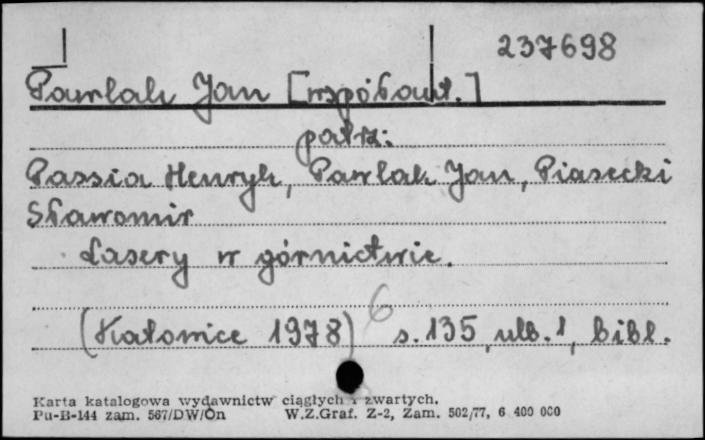 237698
Pawlak Jan [współaut.]
patrz:
Passia Henryk, Pawlak Jan, Piasecki
Sławomir
Lasery w górnictwie.
6
(Katowice 1978) s. 135, ulb. 1, bibl.
Karta katalogowa wydawnictw ciągłych i zwartych.
Pu-B-144 zam. 567/DW/On W.Z.Graf. Z-2, Zam. 502/77, 6 400 000